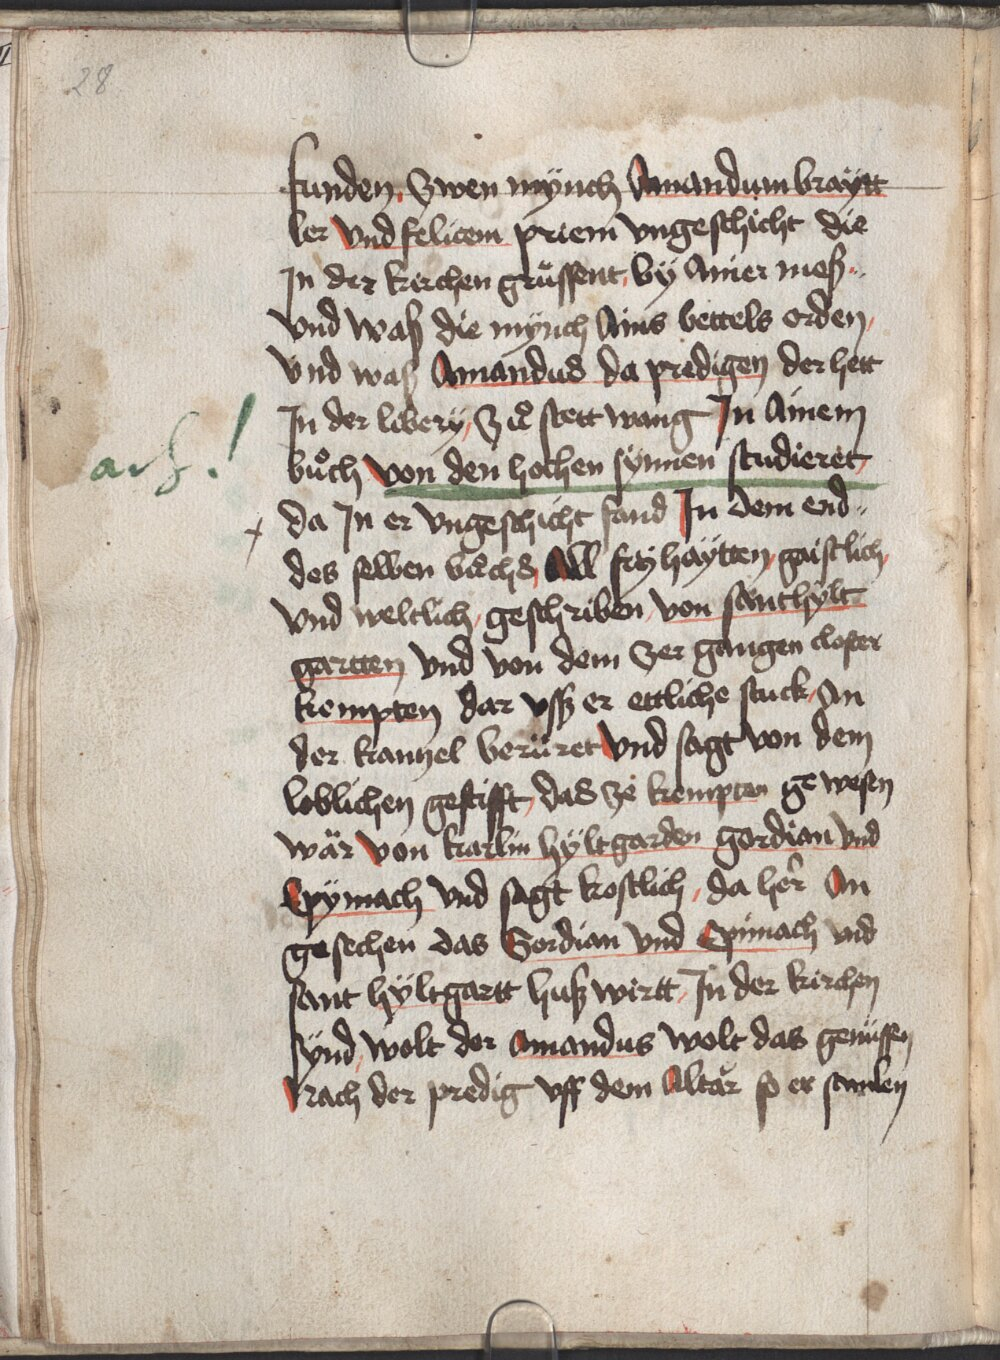 28
funden, zwen mÿnch Amandum braÿtt
ler vnd felicem priem vngeschicht die
In der kirchen grůssent, bÿ Ainer meß
vnd waß die mÿnch Ains bettels orden,
vnd waß Amandus da predigen der hett
In der liberÿ, zů stett wang In Ainem
ach!
bůch von den hochen sÿnnen studieret,
+ da In er vngeschicht fand In dem end
des selben bůchs, All frÿhaÿtten, gaistlich,
vnd weltlich, geschriben, von sant hÿlt
gartten vnd von dem zer gangen closter
kempten dar vsß er ettliche stuck, An
der kantzel berůret vnd sagt von dem
loblichen gestifft, das ze kempten gewesen
wär von karlin hÿltgarden gordian vnd
Epÿmach vnd sagt kostlich, da her An
gesechen das Gordian vnd Epimach vnd
sant hÿltgartt huß wirtt, In der kirchen
sÿnd, wolt der Amandus wolt das genüssen
nach der predig vff dem Altär so er